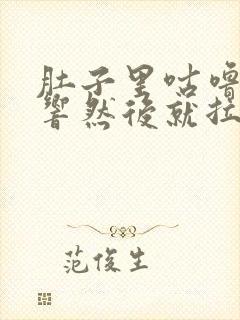 肚子里咕噜
響然後就拉
范俊生